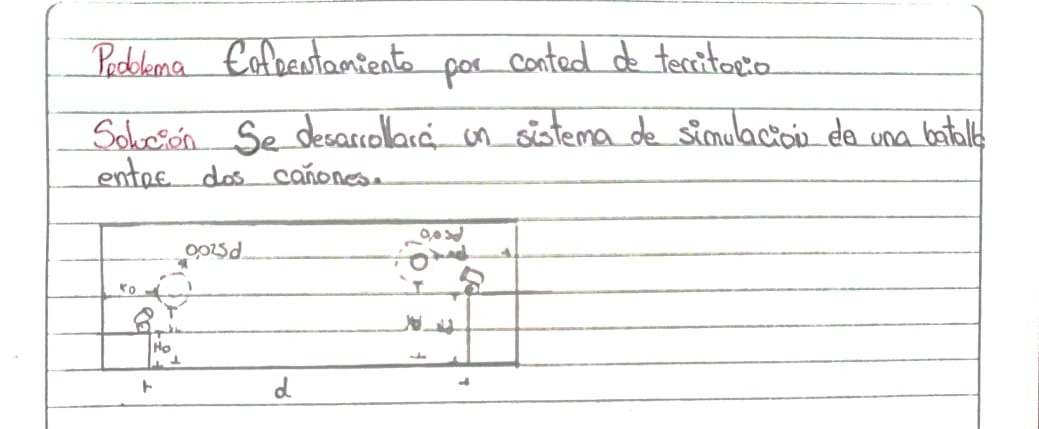 Problema Enfrentamiento por control de territorio
Solución Se desarrollará un sistema de simulación de una batalla
entre dos cañones.
0,025d
Ho
d